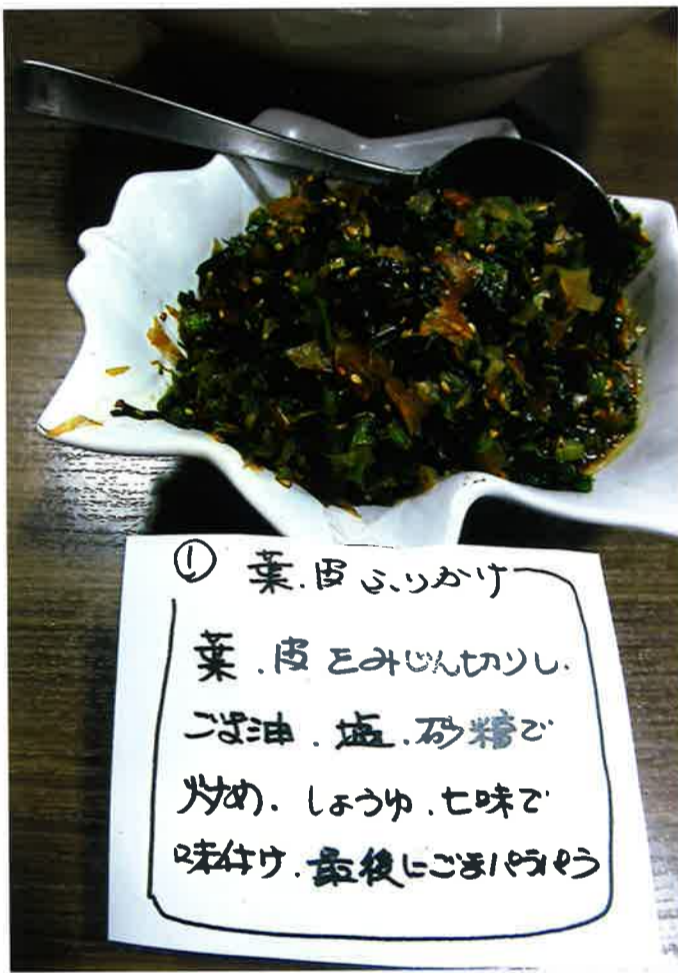 ① 葉.皮ふりかけ
葉.皮をみじん切りし.
ごま油.塩.砂糖で
炒め.しょうゆ.七味で
味付け.最後にごまパラパラ